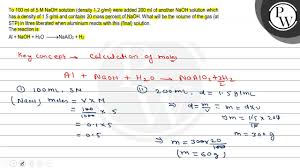 To 100 ml of 5 M NaOH solution (density 1.2 g/ml) were added 200 ml of another NaOH solution which
has a density of 1.5 g/ml and contains 20 mass percent of NaOH. What will be the volume of the gas (at
STP) in litres liberated when aluminium reacts with this (final) solution.
The reaction is
Al + NaOH + H₂O ⟶ NaAlO₂ + H₂
Key concept → Calculation of moles
Al + NaOH + H₂O → NaAlO₂ + 3/2 H₂
(i) 100ml, 5M
(NaOH) moles = V×M
= 100/1000 × 5
= 0.1×5
= 0.5
(ii) 200ml, d = 1.5g/mL
⇒ d = m/V ⇒ m = d×V
⇒ m = 1.5 × 200
m = 300g
⇒ m = 300×20/100
(m = 60g)